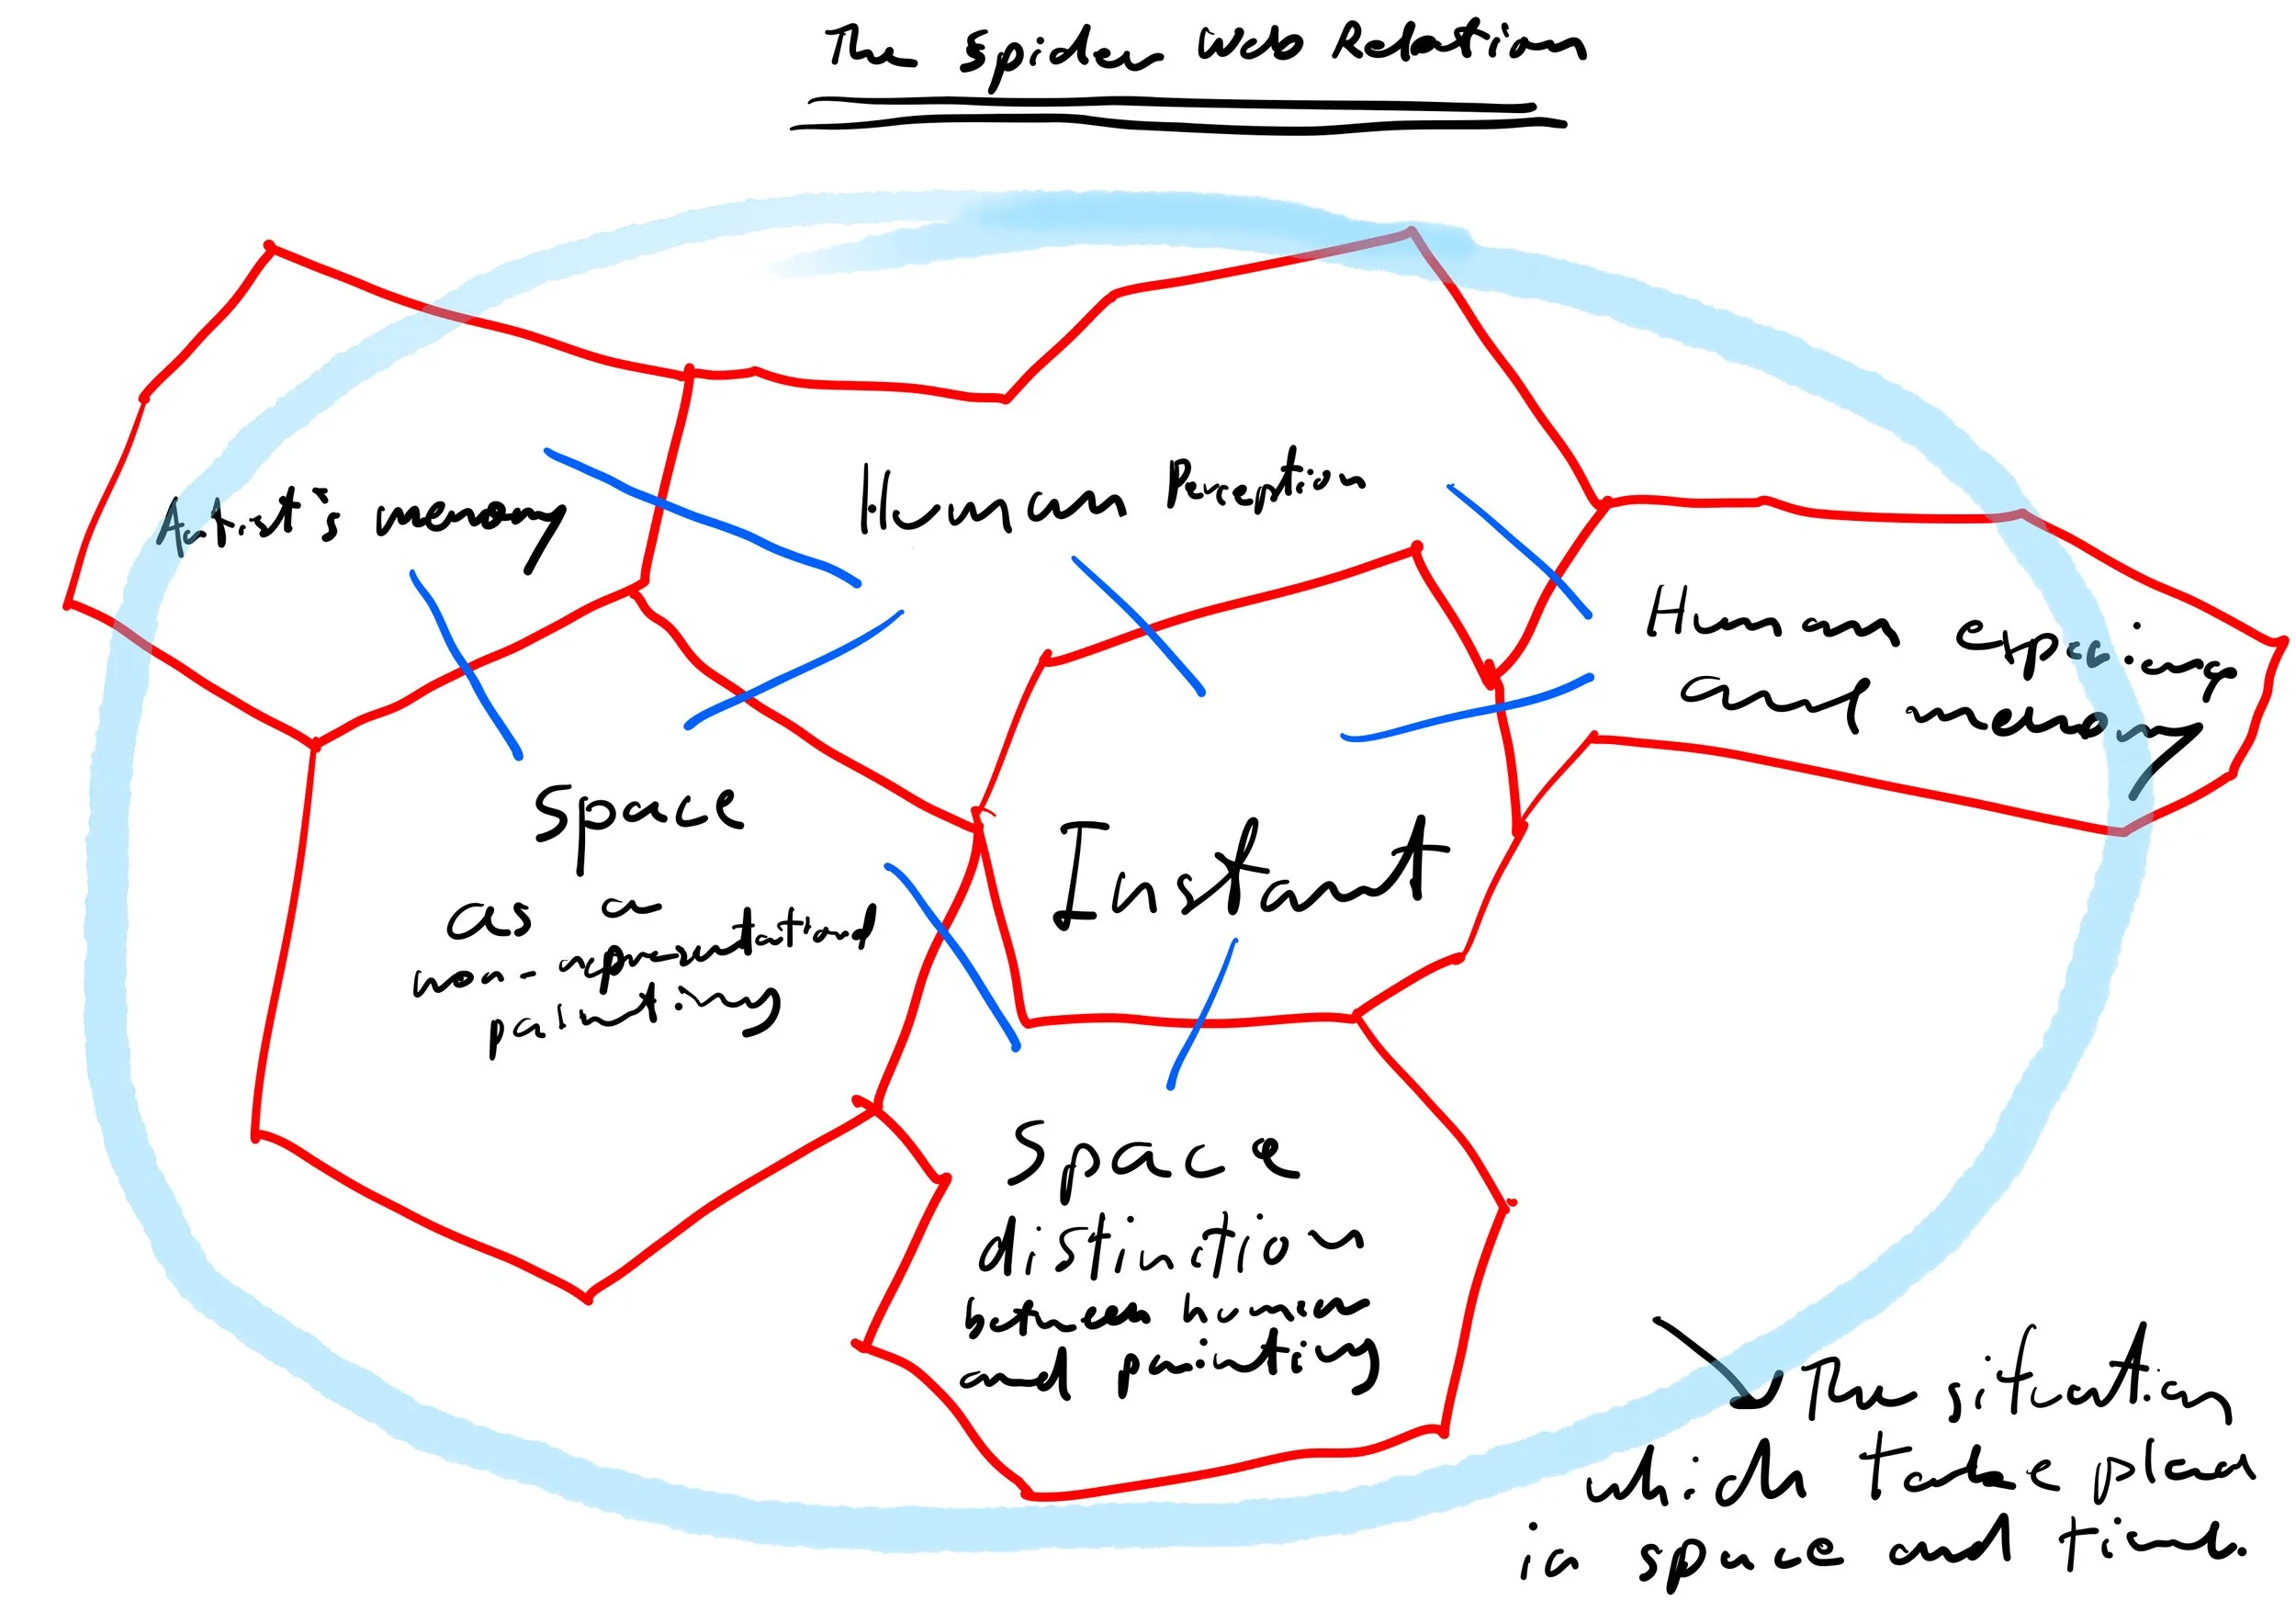 The Spider Web Relation
Artist's memory
Human Perception
Human expering
and memory
Space
as a
non-representational
painting
Instant
Space
distinction
between human
and painting
The situation
which take place
in space and time.